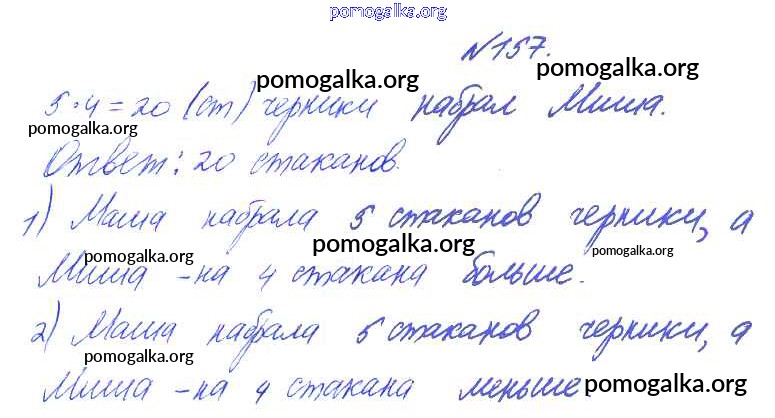 pomogalka.org
№157.
pomogalka.org pomogalka.org
5·4=20 (ст) черники набрал Миша.
pomogalka.org
Ответ: 20 стаканов.
1) Маша набрала 5 стаканов черники, а
pomogalka.org pomogalka.org pomogalka.org
Миша - на 4 стакана больше.
2) Маша набрала 5 стаканов черники, а
pomogalka.org
Миша - на 4 стакана меньше
pomogalka.org